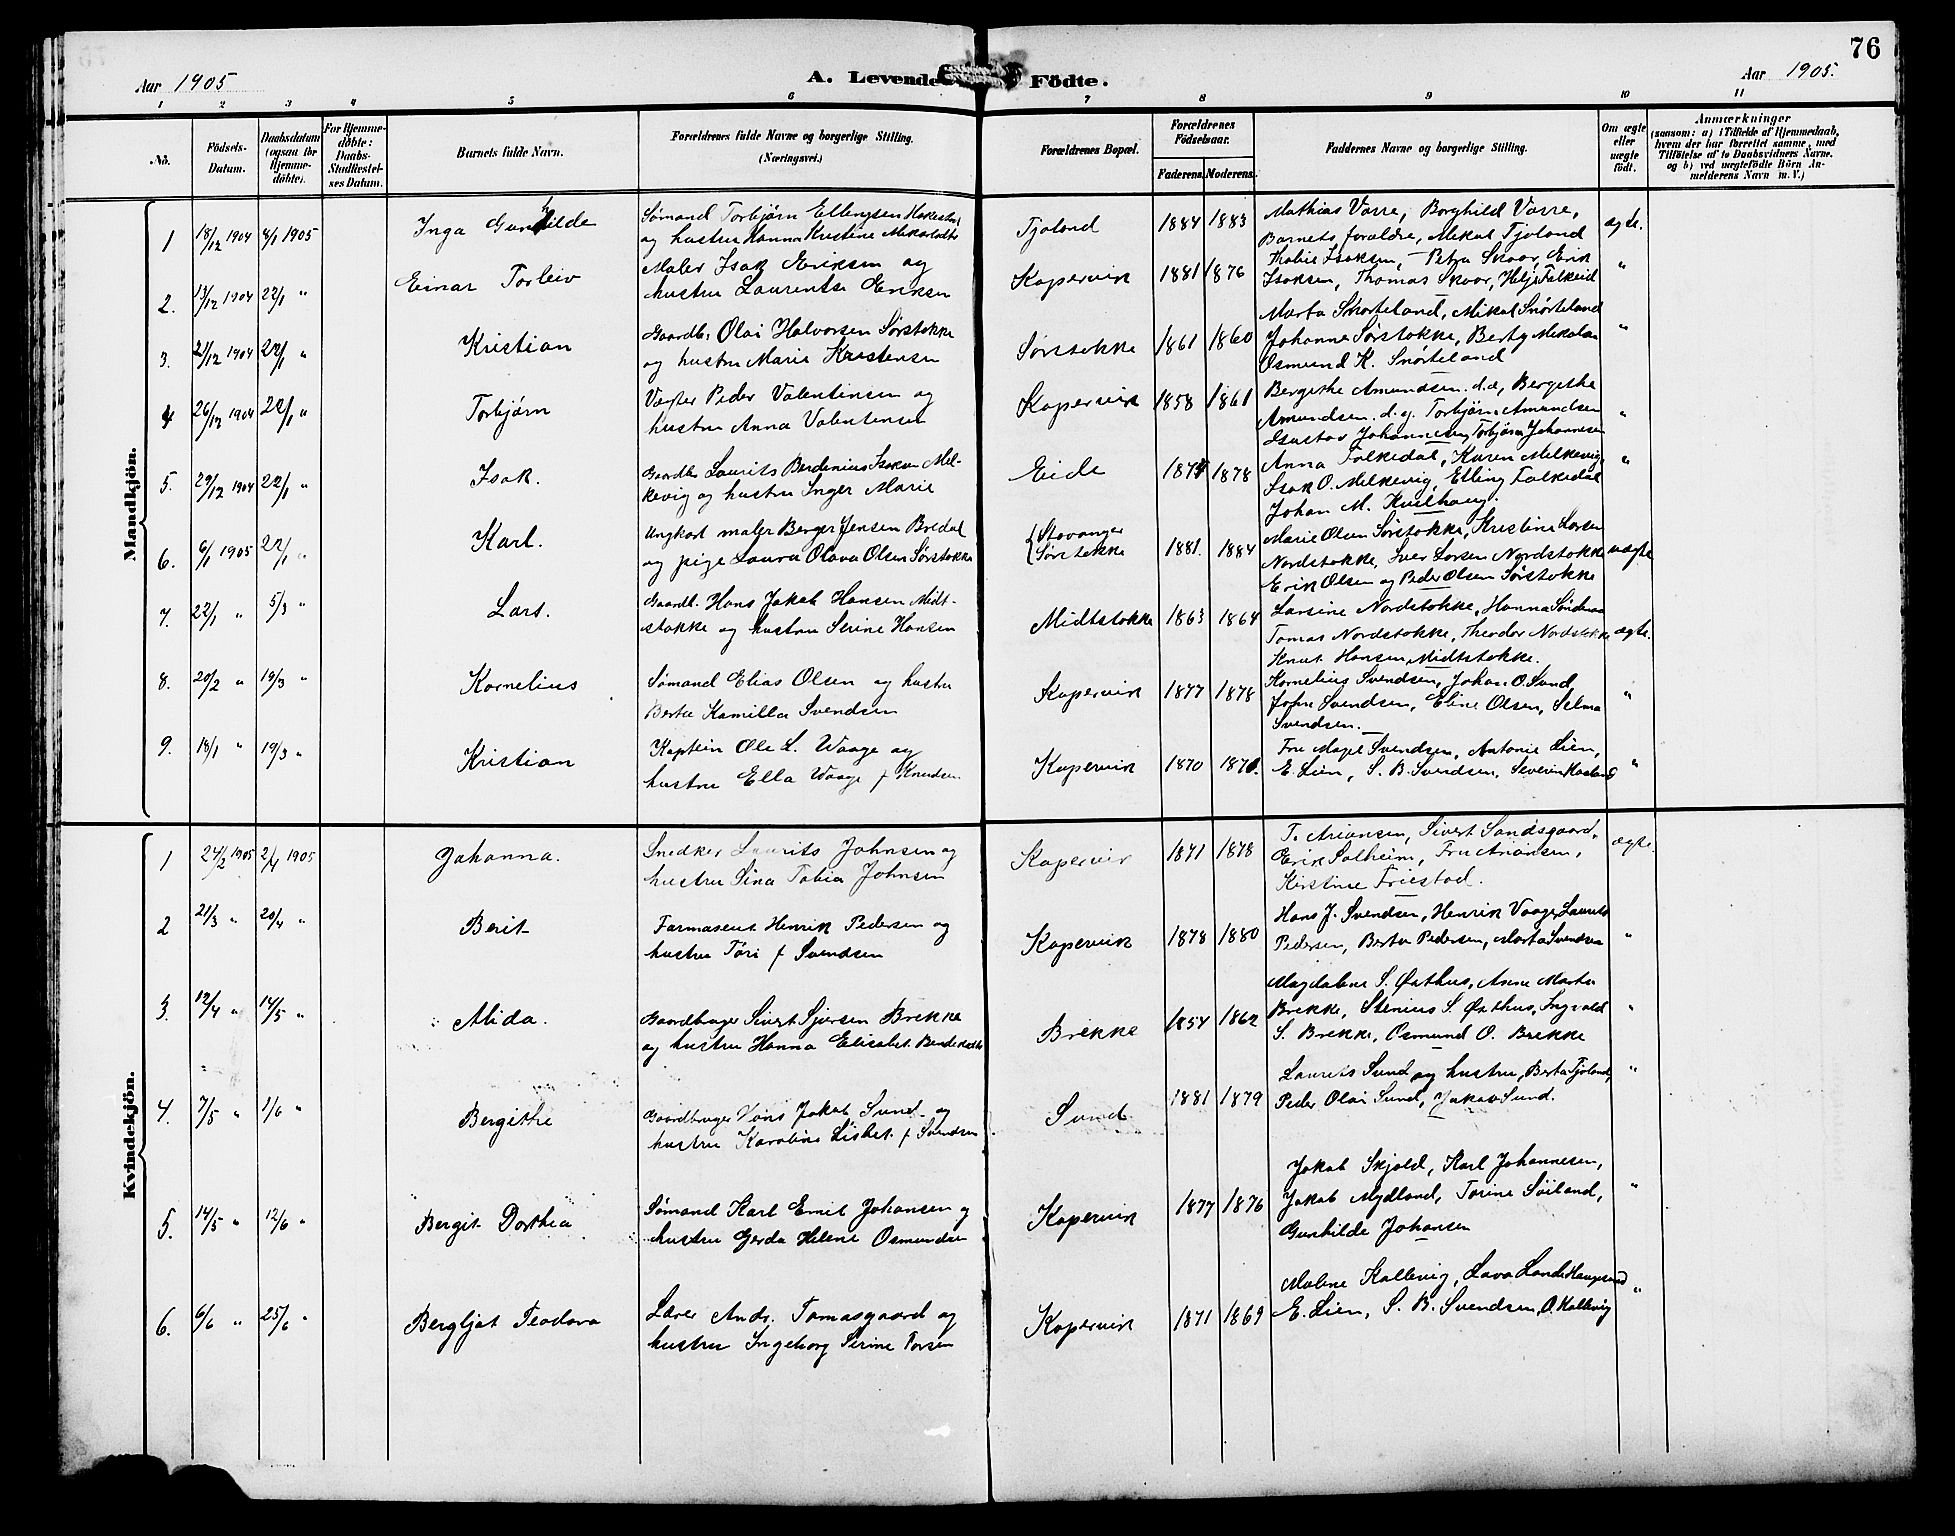 76
Aar 1905
A. Levende Födte.
Aar 1905.
1 2 3 4 5 6 7 8 9 10 11
No.
Födsels-Datum.
Daabsdatum (ogsaa for Hjemme-döbte).
For Hjemme-döbte: Daabs-Stadfæstel-ses Datum.
Barnets fulde Navn.
Forældrenes fulde Navne og borgerlige Stilling. (Næringsvei.)
Forældrenes Bopæl.
Forældrenes Födselsaar.
Faderens. Moderens.
Faddernes Navne og borgerlige Stilling.
Om ægte eller uægte födt.
Anmærkninger
(saasom: a) i Tilfælde af Hjemmedaab, hvem der har forrettet samme, med Tilföielse af to Daabsvidners Navne, og b) ved uægtefödte Börn An-melderens Navn m. V.)
Mandkjön.
1 18/12 1904 8/1 1905 Inga Gunhilde
Sømand Torbjørn Ellingsen
og hustru Hanna Kristine
Tjoland 1884 1883
Mathias Vorre, Borghild Vorre,
Barnets forældre, Mikal Tjoland
ægte.
2. 13/12 1904 22/1 " Einar Torleiv
Maler Isak Eriksen og
hustru Laurentse Eriksen
Kopervik 1881 1876
Isaksen, Petra Skaar, Erik
Isaksen, Thomas Skaar, Helje Falkeid
"
3. 21/12 1904 22/1 " Kristian
Gaardb. Olai Halvorsen Sørstokke
og hustru Marie Kristensen
Sørstokke 1861 1860
Marta Snørteland, Mikal Snørteland
Johanne Sørstokke, Berty Mikalsen
Osmund K. Snørteland
"
4 26/12 1904 22/1 " Torbjørn
Vægter Peder Valentinsen og
hustru Anna Valentensen
Kopervik 1858 1861
Bergithe Amundsen d.æ, Bergithe
Amundsen d.y. Torbjørn Amundsen
Gustav Johannesen, Torbjørn Johannesen
"
5. 29/12 1904 22/1 " Isak.
Gaardb. Laurits Berdenius Isaksen Mel-
kevig og hustru Inger Marie
Eide 1874 1878
Anna Falkedal, Karen Melkevig
Isak O. Melkevig, Elling Falkedal
Johan M. Kvilhaug.
"
6. 6/1 1905 22/1 " Karl.
Ungkart maler Berger Jensen Bredal
og pige Laura Olava Olsen Sørstokke
Stavanger
Sørstokke
1881. 1884
Marie Olsen Sørstokke, Kristine Larsen
Nordstokke, Iver Larsen Nordstokke
Erik Olsen og Peder Olsen Sørstokke
uægte
7. 22/1 " 5/3 " Lars.
Gaardb. Hans Jakob Hansen Midt-
stokke og hustru Serine Hansen
Midtstokke 1863 1864
Larsine Nordstokke, Hanna
Tomas Nordstokke, Theodor Nordstokke
Knut Hansen Midtstokke.
ægte.
8. 20/2 " 19/3 " Kornelius
Sømand Elias Olsen og hustru
Berta Kamilla Svendsen
Kopervik 1877 1878
Kornelius Svendsen, Johan O. Sund,
John Svendsen, Eline Olsen, Selma
Svendsen.
"
9. 18/1 " 19/3 " Kristian
Kaptein Ole L. Waage og
hustru Ella Waage f Knudsen
Kopervik 1870 1871.
Fru Svendsen, Antonie Lien,
E. Lien, S. B. Svendsen, Severin
"
Kvindekjön.
1 24/2 1905 2/4 1905 Johanna.
Snedker Laurits Johnsen og
hustru Sina Tobia Johnsen
Kopervik 1871 1878
T. Ariansen, Sivert Sandsgaard,
Erik Solheim, Fru Ariansen,
Kirstine Friestad.
ægte.
2 21/3 " 20/4 " Berit
Farmaseut Henrik Pedersen og
hustru Tori f Svendsen
Kopervik 1878 1880
Hans J. Svendsen, Henrik Vaage, Laurits
Pedersen, Berta Pedersen, Marta Svendsen
"
3. 12/4 " 14/5 " Alida.
Gaardbruger Sivert Sjursen Brekke
og hustru Hanna Elisabet
Brekke 1854 1862
Magdalene S. Østhus, Anne Marta
Brekke, Stenius S. Østhus, Ingvald
S. Brekke, Osmund O. Brekke
"
4. 7/5 " 1/6 " Bergithe
Gaardbruger Hans Jakob Sund og
hustru Karoline Lisbet f Svendsen
Sund 1881 1879
Laurits Sund og hustru, Berta Tjoland,
Peder Olai Sund, Jakob Sund.
"
5. 14/5 " 12/6 " Bergit Dorthea
Sømand Karl Emil Johansen og
hustru Gerda Helene Osmundsen
Kopervik 1877 1876
Jakob Skjold, Karl Johannesen,
Jakob Mydland, Torine Søiland,
Gunhilde Johansen
"
6. 6/6 " 25/6 " Bergljot Teodora
Lærer Andr. Tomasgaard og
hustru Ingeborg Serine Torsen
Kopervik 1871 1869
Malene Kallevig, Lava Lande Haugesund
E. Lien, S. B. Svendsen, O. Kallevig
"